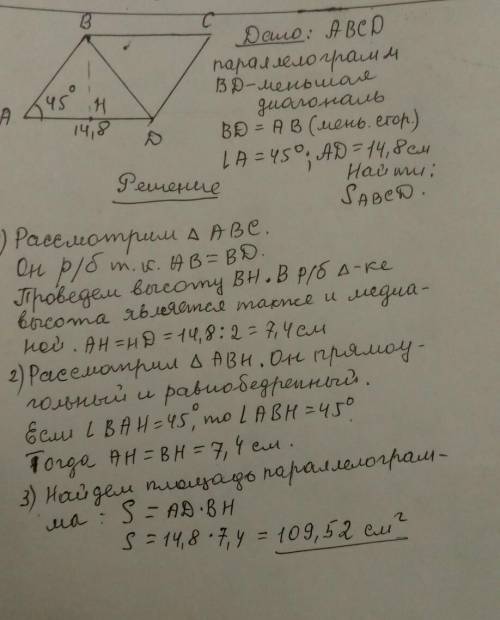 B C
Дано: ABCD
параллелограмм
BD-меньшая
диагональ
BD = AB (мень. стор.)
∠A = 45°; AD = 14,8 см
Найти:
S ABCD.
A 45° H
14,8 D
Решение
) Рассмотрим △ ABC.
Он р/б т.к. AB = BD.
Проведем высоту BH. В р/б △-ке
высота является также и медиа-
ной. AH = HD = 14,8 : 2 = 7,4 см
2) Рассмотрим △ ABH. Он прямоу-
гольный и равнобедренный.
Если ∠BAH = 45°, то ∠ABH = 45°
Тогда AH = BH = 7,4 см.
3) Найдем площадь параллелограм-
ма: S = AD · BH
S = 14,8 · 7,4 = 109,52 см²